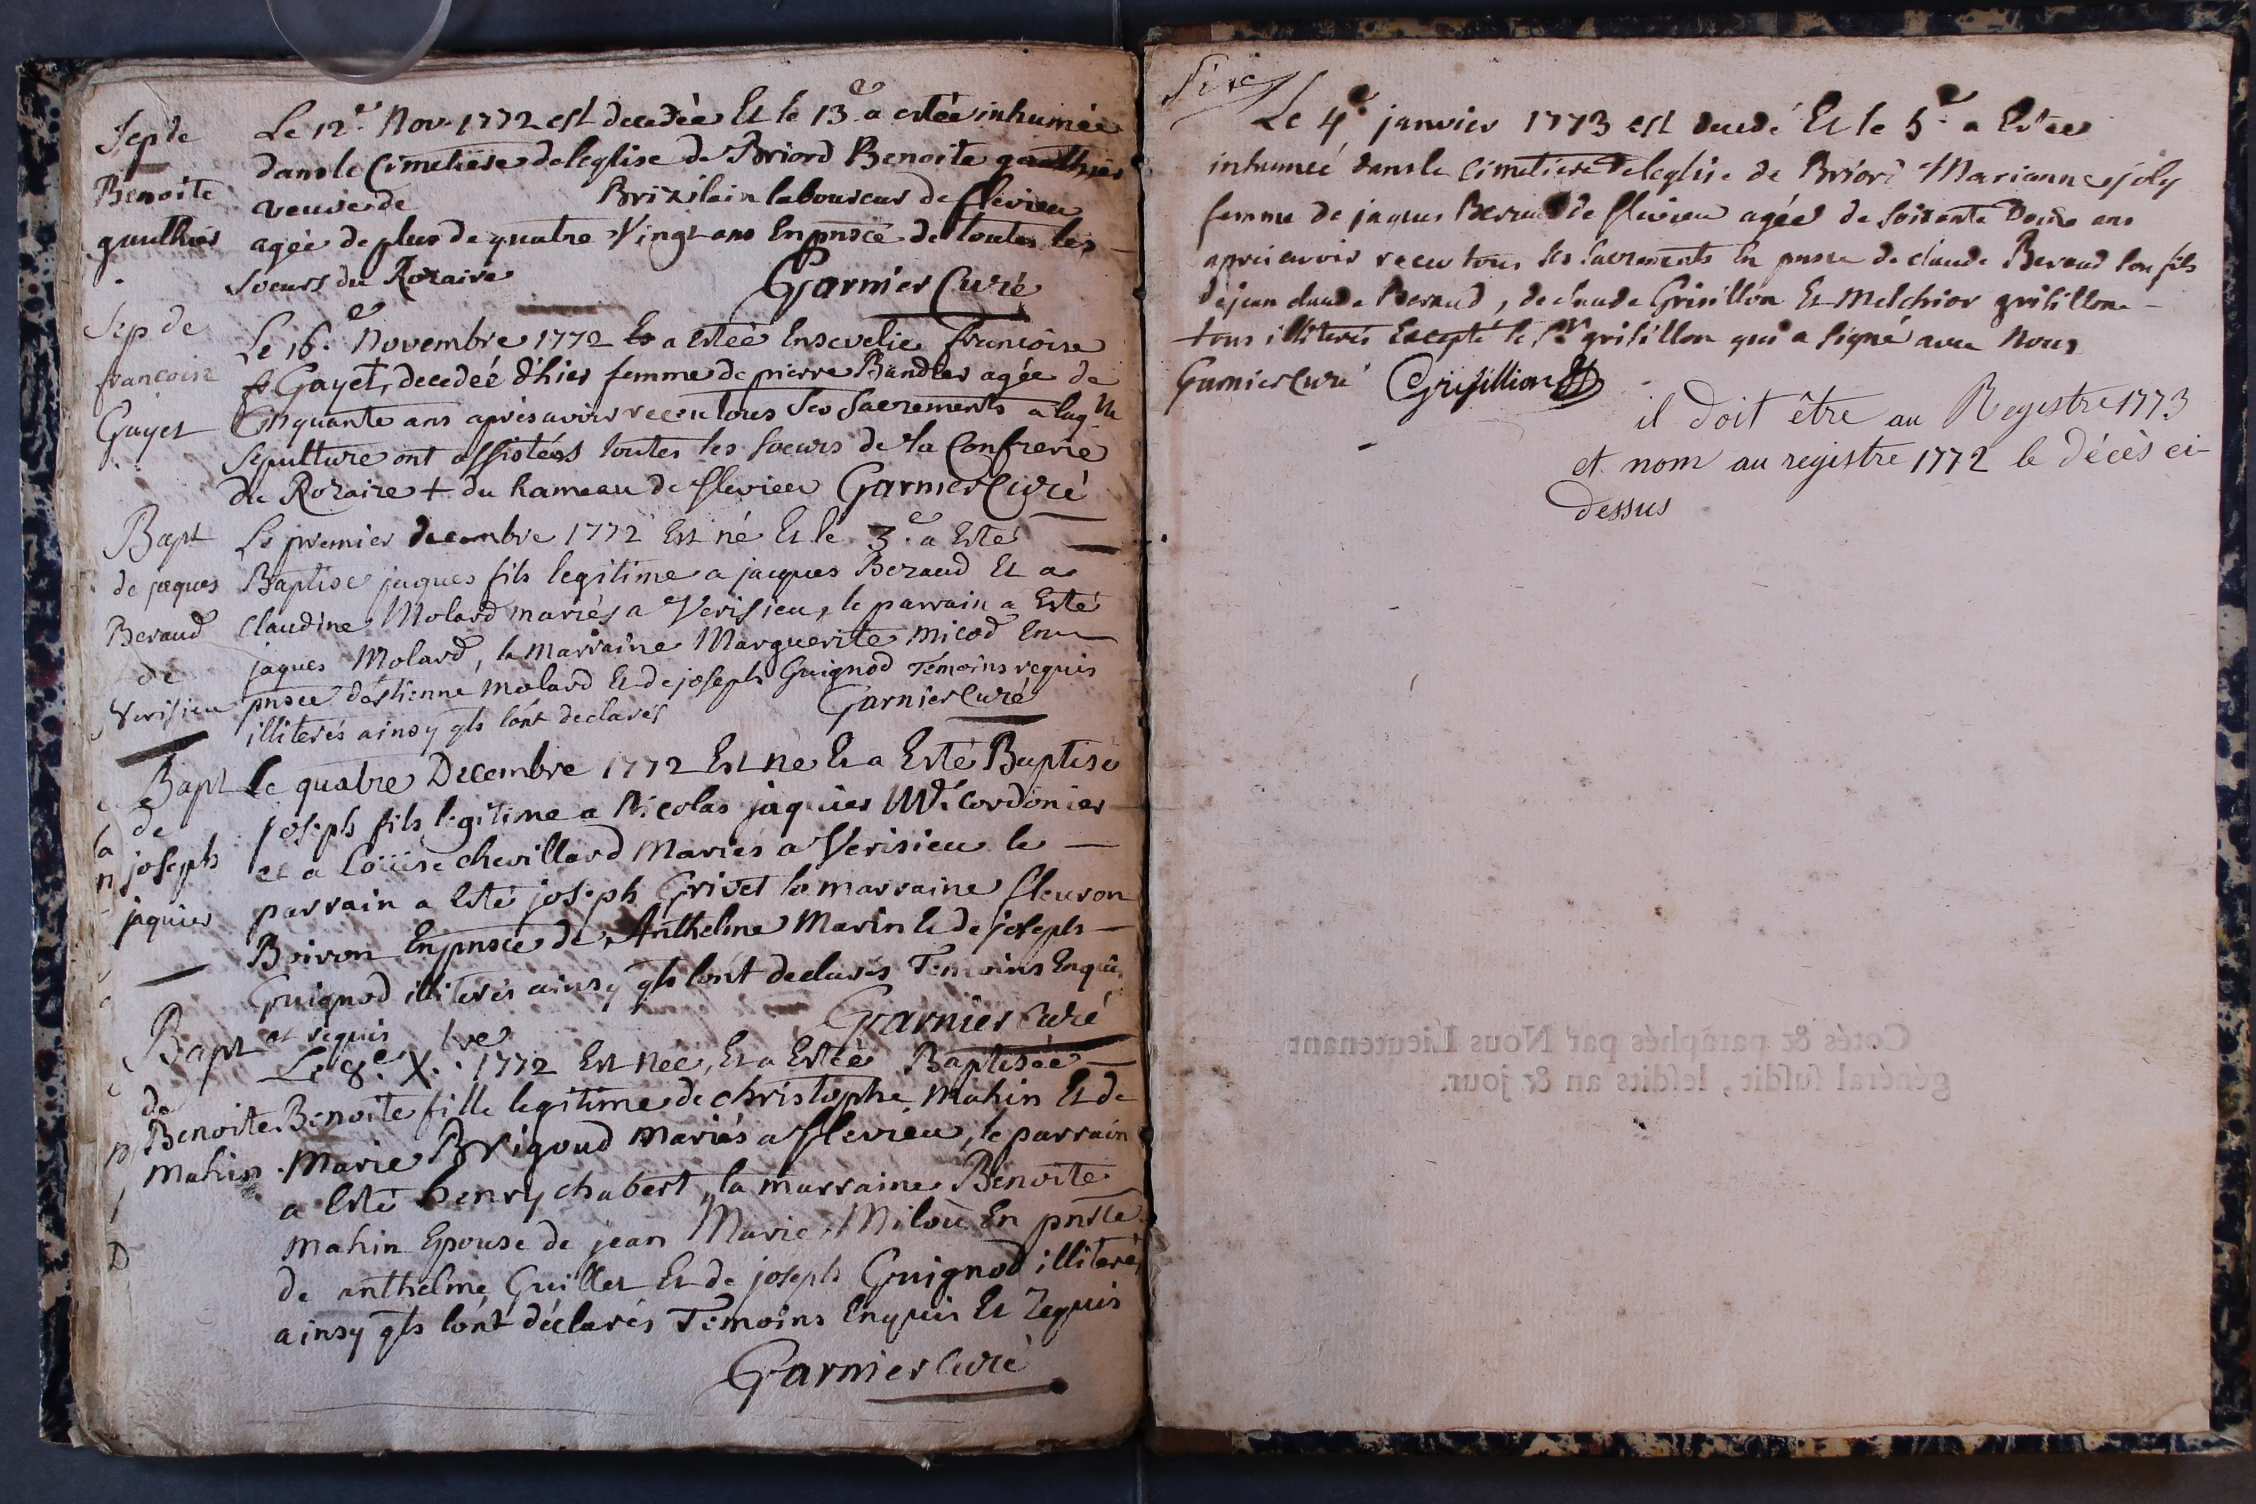 Sep de
Benoite
gauthier
Le 12e Nov. 1772 est decedée Et le 13e a estée inhumée
dans le Cimetiere de leglise de Briord Benoite gauthier
veuve de Brizilain laboureur de flevieu
agée de plus de quatre Vingt ans En pnsce de toutes les
soeurs du Rozaire Garnier Curé
Sep de
francoise
Gayet
Le 16e Novembre 1772 a Estée Ensevelie francoise
Gayet, decedeé d'hier femme de pierre Bandet agée de
Cinquante ans apres avoir receu tous Ses Sacrements a laqlle
Sepulture ont assistées toutes les soeurs de la Confrerie
du Rozaire + du hameau de flevieu Garnier Curé
Bapt
de jacques
Beraud
de
Verisieu
Le premier decembre 1772 Est né Et le 3e a Esté
Baptise jaques fils legitime a jacques Beraud Et a
Claudine Molard mariés a Verisieu, le parrain a Esté
jaques Molard, la marraine Marguerite micod En
pnsce destienne Molard Et de joseph Guignod Témoins requis
illiterés ainsy qls lont declarés Garnier Curé
Bapt
de
joseph
jaquier
Le quatre Decembre 1772 Est né Et a Esté Baptisé
joseph fils legitime a Nicolas jaquier Md Cordonier
et a Loüise chevillard Mariés a Verisieu le
parrain a Esté joseph Grivet la marraine fleuron
Boiron En pnsce de Anthelme Marin Et de joseph
Guignod illiterés ainsy qls lont declarés Temoins Enquis
et requis Garnier Curé
Bapt
de
Benoite
Mahin
Le 8e Xbre 1772 Est née, Et a Estée Baptisée
Benoite fille legitime de christophe Mahin Et de
Marie Brigoud Mariés a flevieu, le parrain
a Esté henry chabert, la marraine Benoite
Mahin Epouse de jean Marie Miloù En pnsce
de anthelme Guillet Et de joseph Guignod illiterés
ainsy qls lont déclarés Témoins Enquis Et Requis
Garnier Curé
Le 4e janvier 1773 est decedé Et le 5e a Estee
inhumeé dans le Cimetiere de leglise de Briord Marianne joly
femme de jaques Beraud de flevieu agée de Soixante Douze ans
apres avoir receu tous les sacrements En pnsce de claude Beraud son fils
de jean claude Beraud, de claude Grisillon Et Melchior grisillon
tous illiterés Excepté le Sr grisillon qui a signé avec Nous
Garnier Curé Grisillion
il doit être au Regestre 1773
et nom au registre 1772 le décès ci-
dessus
Cotés & paraphés par Nous Lieutenant
général susdit, lesdits an & jour.